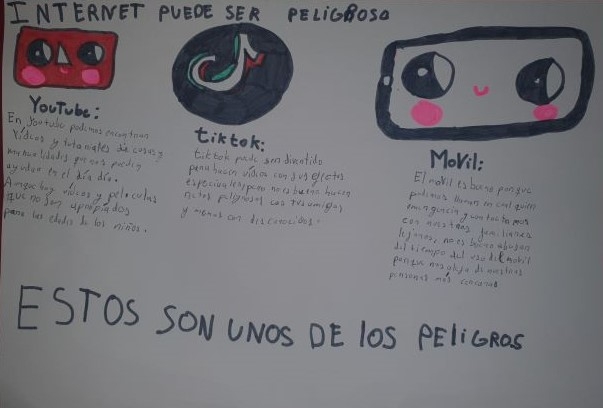 INTERNET PUEDE SER PELIGROSO
YouTube:
En Youtube podemos encontrar
vídeos y tutoriales de cosas y
manualidades que nos pueden
ayudar en el día día.
Aunque hay vídeos y películas
que no son apropiados
para las edades de los niños.
tiktok:
tiktok puede ser divertido
para hacer vídeos con sus efectos
especiales, pero no es bueno hacer
retos peligrosos con tus amigos
y menos con desconocidos.
Movil:
El movil es bueno porque
podemos llamar en cualquier
emergencia y contactarnos
con nuestros familiares
lejanos, no es bueno abusar
del tiempo del uso del movil
porque nos aleja de nuestras
personas más cercanas
ESTOS SON UNOS DE LOS PELIGROS